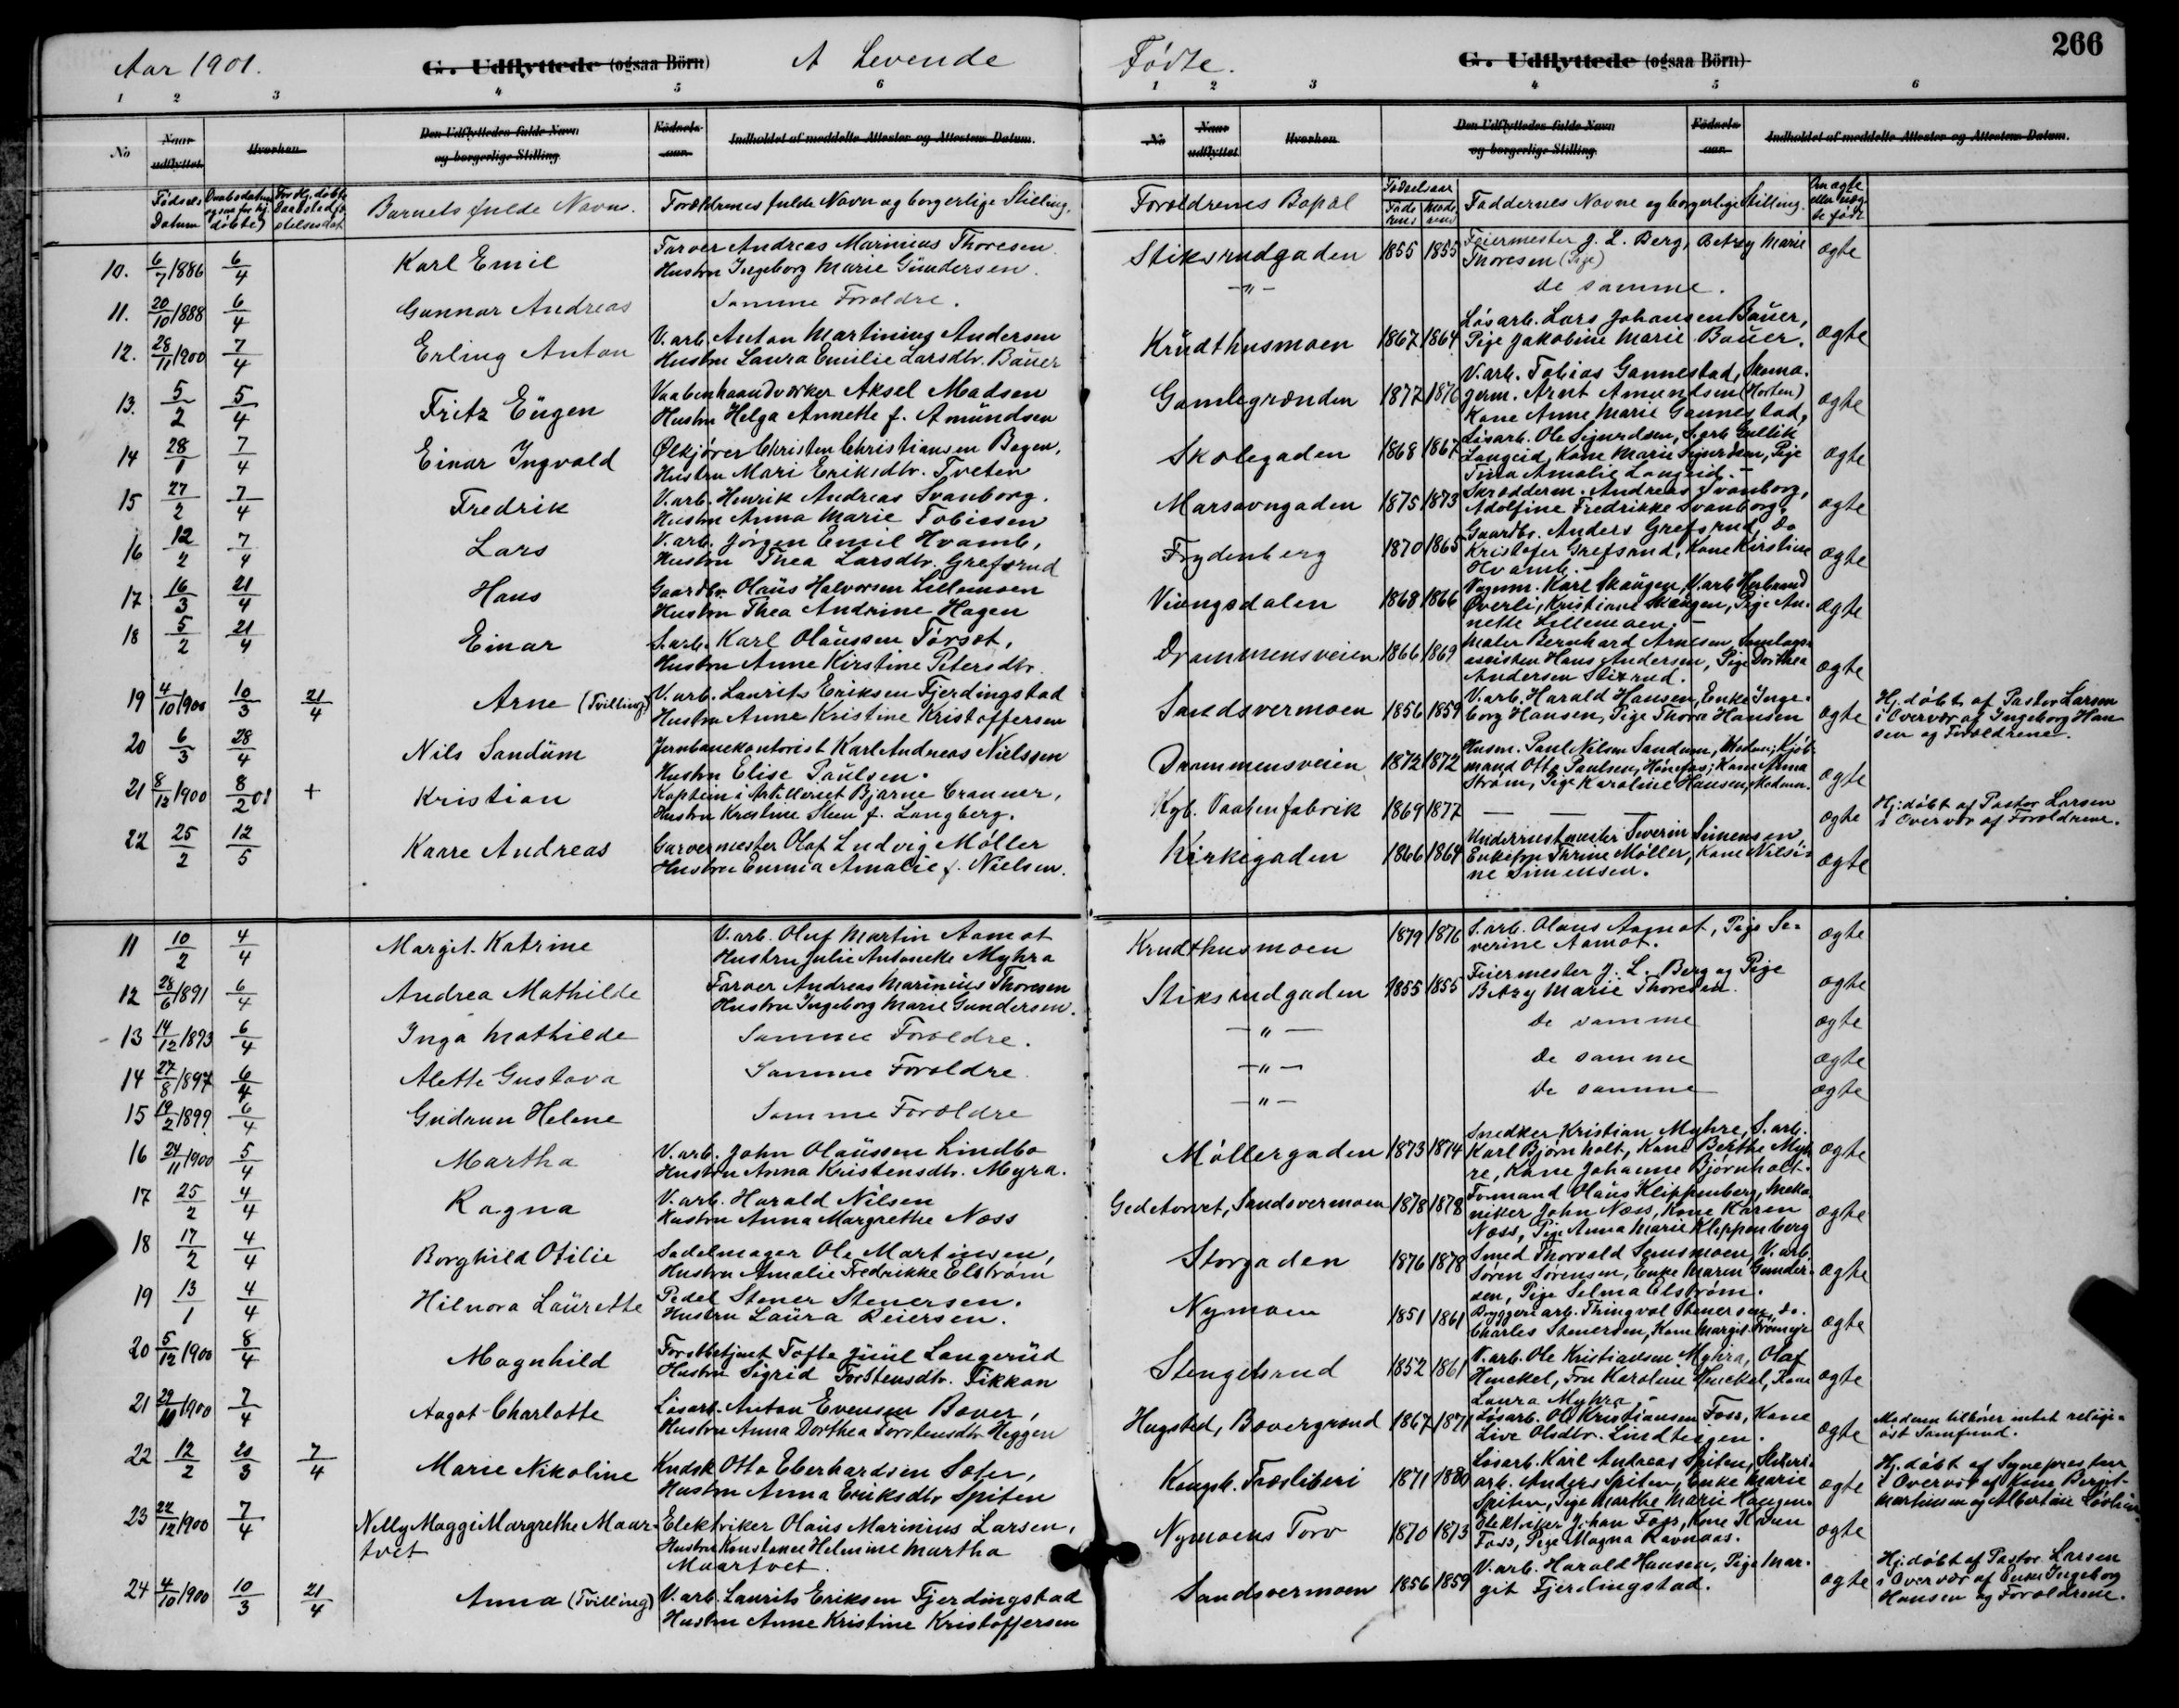 Aar 1901.
G. Udflyttede (ogsaa Börn)
A Levende
1 2 3 4 5 6
No
Naar udflyttet
Hvorhen
Den Udflyttedes fulde Navn og borgerlige Stilling.
Födsels-aar.
Indholdet af meddelte Attester og Attestens Datum.
Fødsels Datum
Barnets fulde Navn.
Forældrenes fulde Navn og borgerlige Stilling.
10. 6/7 1886 6/4 Karl Emil Farver Andreas Marinius Thoresen
Hustru Ingeborg Marie Gundersen.
11. 20/10 1888 6/4 Gunnar Andreas Samme Forældre.
12. 28/11 1900 7/4 Erling Anton V.arb. Anton Martinius Andersen
Hustru Laura Emilie Larsdtr. Bauer
13. 5/2 5/4 Fritz Eugen Vaabenhaandværker Aksel Madsen
Hustru Helga Annette f. Amundsen
14 28/1 7/4 Einar Ingvald Ølkjører Christen Christiansen Bagen,
Hustru Mari Eriksdtr. Tveten
15 27/2 7/4 Fredrik V.arb. Henrik Andreas Svanborg.
Hustru Anna Marie Tobiesen
16 12/2 7/4 Lars V.arb. Jørgen Emil Hvamb,
Hustru Thea Larsdtr. Grefsrud
17 16/3 21/4 Hans Gaardbr. Olaus Halvorsen Lillemoen
Hustru Thea Andrine Hagen
18 5/2 21/4 Einar S.arb. Karl Olaussen Tørset,
Hustru Anne Kirstine Petersdtr.
19 4/10 1900 10/3 21/4 Arne (Tvilling) V.arb. Laurits Eriksen Fjerdingstad
Hustru Anne Kristine Kristoffersen
20 6/3 28/4 Nils Sandum Jernbanekontorist Karl Andreas Nielssen
Hustru Elise Paulsen.
21 8/12 1900 8/2 01 + Kristian Kaptein i Artilleriet Bjarne Cranner,
Hustru Kristine Steen f. Langberg.
22 25/2 12/5 Kaare Andreas Garvermester Olaf Ludvig Møller
Hustru Emma Amalie f. Nielsen.
11 10/2 4/4 Margit Katrine V.arb. Oluf Martin Aamot
Hustru Julie Antonette Myhra
12 28/6 1891 6/4 Andrea Mathilde Farver Andreas Marinius Thoresen
Hustru Ingeborg Marie Gundersen.
13 14/12 1893 6/4 Inga Mathilde Samme Forældre.
14 27/8 1897 6/4 Alette Gustava Samme Forældre
15 19/2 1899 6/4 Gudrun Helene Samme Forældre
16 24/11 1900 5/4 Martha V.arb. John Olaussen Lindbo
Hustru Anna Kristensdtr. Myra.
17 25/2 4/4 Ragna V.arb. Harald Nilsen
Hustru Anna Margrethe Næss
18 17/2 4/4 Borghild Otilie Sadelmager Ole Martinsen,
Hustru Amalie Fredrikke Elstrøm
19 13/1 4/4 Hilnora Laurette Pedel Stener Stenersen.
Hustru Laura Reiersen.
20 5/12 1900 8/4 Magnhild Forstbetjent Tofte Juul Langerud
Hustru Sigrid Torstensdtr. Fikkan
21 29/10 1900 7/4 Aagot Charlotte Løsarb. Anton Evensen Bover,
Hustru Anna Dorthea Torstensdtr. Heggen
22 12/2 20/3 7/4 Marie Nikoline Kudsk Otto Eberhardsen Sater,
Hustru Anna Eriksdtr. Spiten
23 22/12 1900 7/4 Nelly Maggi Margrethe Maartvet Elektriker Olaus Marinius Larsen,
Hustru Konstance Helmine Martha
Maartvet.
24 4/10 1900 10/3 21/4 Anna (Tvilling) V.arb. Laurits Eriksen Fjerdingstad
Hustru Anne Kristine Kristoffersen
266
Fødte.
G. Udflyttede (ogsaa Börn)
1 2 3 4 5 6
No
Naar udflyttet
Hvorhen
Den Udflyttedes fulde Navn og borgerlige Stilling.
Födsels-aar.
Indholdet af meddelte Attester og Attestens Datum.
Forældrenes Bopæl
Fødselsaar
Faderens Moderens
Faddernes Navne og borgerlige Stilling.
Om ægte eller uægte født
Stiksrudgaden 1855 1855 Feiermester J. L. Berg, Betzy Marie
Thoresen (Pige) ægte
-"- De samme.
Krudthusmoen 1867 1864 Løsarb. Lars Johansen Bauer,
Pige Jakobine Marie Bauer. ægte
Gamlegrænden 1877 1876 V.arb. Tobias Gannestad, Skoma-
germ. Arnt Amundsen (Horten)
Kone Anne Marie Gannestad, ægte
Skolegaden 1868 1867 Løsarb. Ole Sigurdsen, S.arb Gullik
Langeid, Kone Marie Sigurdsen, Pige
Tina Amalie Langeid. - ægte
1875 1873 Skrædderm. Andreas Svanborg,
Adolfine Fredrikke Svanborg, ægte
Frydenberg 1870 1865 Gaardbr. Anders Grefsrud, Do
Kristofer Grefsrud, Kone Kirstine
Hvamb. - ægte
Vingsdalen 1868 1866 Vognm. Karl Skaugen, V.arb Herbrand
Øverli, Kristiane Skaugen, Pige An-
nette Lillemoen. - ægte
Drammensveien 1866 1869 Maler Bernhard Arnesen, Samlags-
assisten Hans Andersen, Pige Dorthea
Andersen Stixrud. ægte
Sandsvermoen 1856 1859 V.arb. Harald Hansen, Enke Inge-
borg Hansen, Pige Thora Hansen ægte
Hj. døbt af Pastor Larsen
i Overvær af Ingeborg Han-
sen og Forældrene.
Drammensveien 1872 1872 Husm. Paul Nilsen Sandum, Modum; Kjøb-
mand Otto Paulsen, Hønefos; Kone Anna
Strøm, Pige Karoline Hansen, Modum. ægte
Kgb. Vaabenfabrik 1869 1877 — — — ægte
Hj. døbt af Pastor Larsen
i Overvær af Forældrene.
Kirkegaden 1866 1864 Underrustmester Severin Simensen
Enkefru Thrine Møller, Kone Nilsi-
ne Simensen. ægte
Krudthusmoen 1879 1876 S.arb. Olaus Aamot, Pige Se-
verine Aamot. ægte
Stiksrudgaden 1855 1855 Feiermester J. L. Berg og Pige
Betzy Marie Thoresen. ægte
-"- De samme ægte
-"- De samme ægte
-"- De samme ægte
Møllergaden 1873 1874 Snedker Kristian Myhre, S.arb.
Karl Bjørnholt, Kone Berthe Myh-
re, Kone Johanne Bjørnholt. ægte
Gedetorvet, Sandsvermoen 1878 1878 Formand Olaus Klippenberg, Meka-
niker John Næss, Kone Karen
Næss, Pige Anna Marie Klippenberg ægte
Storgaden 1876 1878 Smed Thorvald Semsmoen, V.arb.
Søren Sørensen, Enke Maren Gunder-
sen, Pige Selma Elstrøm. ægte
Nymoen 1851 1861 Bryggeriarb. Thingval Stenersen, do.
Charles Stenersen, Kone Margit ægte
Stengelsrud 1852 1861 V.arb. Ole Kristiansen Myhra, Olaf
Henckel, Fru Karoline Henckel, Kone
Laura Myhra,- ægte
Hagsted, Bovergrænd 1867 1871 Løsarb. Ole Kristiansen Foss, Kone
Live Olsdtr. Lindtegen. ægte
Moderen tilhører intet religi-
øst Samfund.
Kongsb. Træsliberi 1871 1880 Løsarb. Karl Andreas Spiten, Sliberi-
arb. Anders Spiten, Enke Marie
Spiten, Pige Marthe Marie Haugen. ægte
Hj. døbt af Sogepresten
i Overvær af Kone Bergit
Martinsen og Albertine
Nymoens Torv 1870 1873 Elektriker Johan Foss, Kone Karen
Foss, Pige Magna Ravnaas. ægte
Sandsvermoen 1856 1859 V.arb. Harald Hansen, Pige Mar-
git Fjerdingstad. ægte
Hj. døbt af Pastor Larsen
i Overvær af Enke Ingeborg
Hansen og Forældrene.